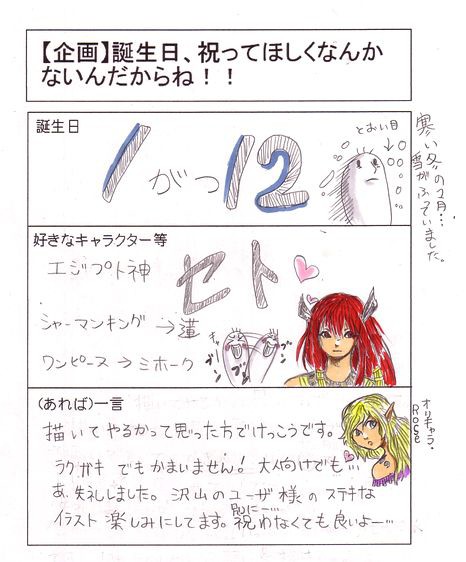 【企画】誕生日、祝ってほしくなんか
ないんだからね！！
誕生日
1がつ12
とおい目
寒い冬の1月…
雪がふっていました。
好きなキャラクター等
エジプト神 セト
シャーマンキング→蓮
ワンピース→ミホーク
(あれば)一言
描いてやるかって思った方でけっこうです。
ラクガキでもかまいません！大人向けでも…
あ、失礼しました。沢山のユーザ様のステキな
イラスト楽しみにしてます。別にー…祝わなくても良いよー…
オリキャラ・
Rose